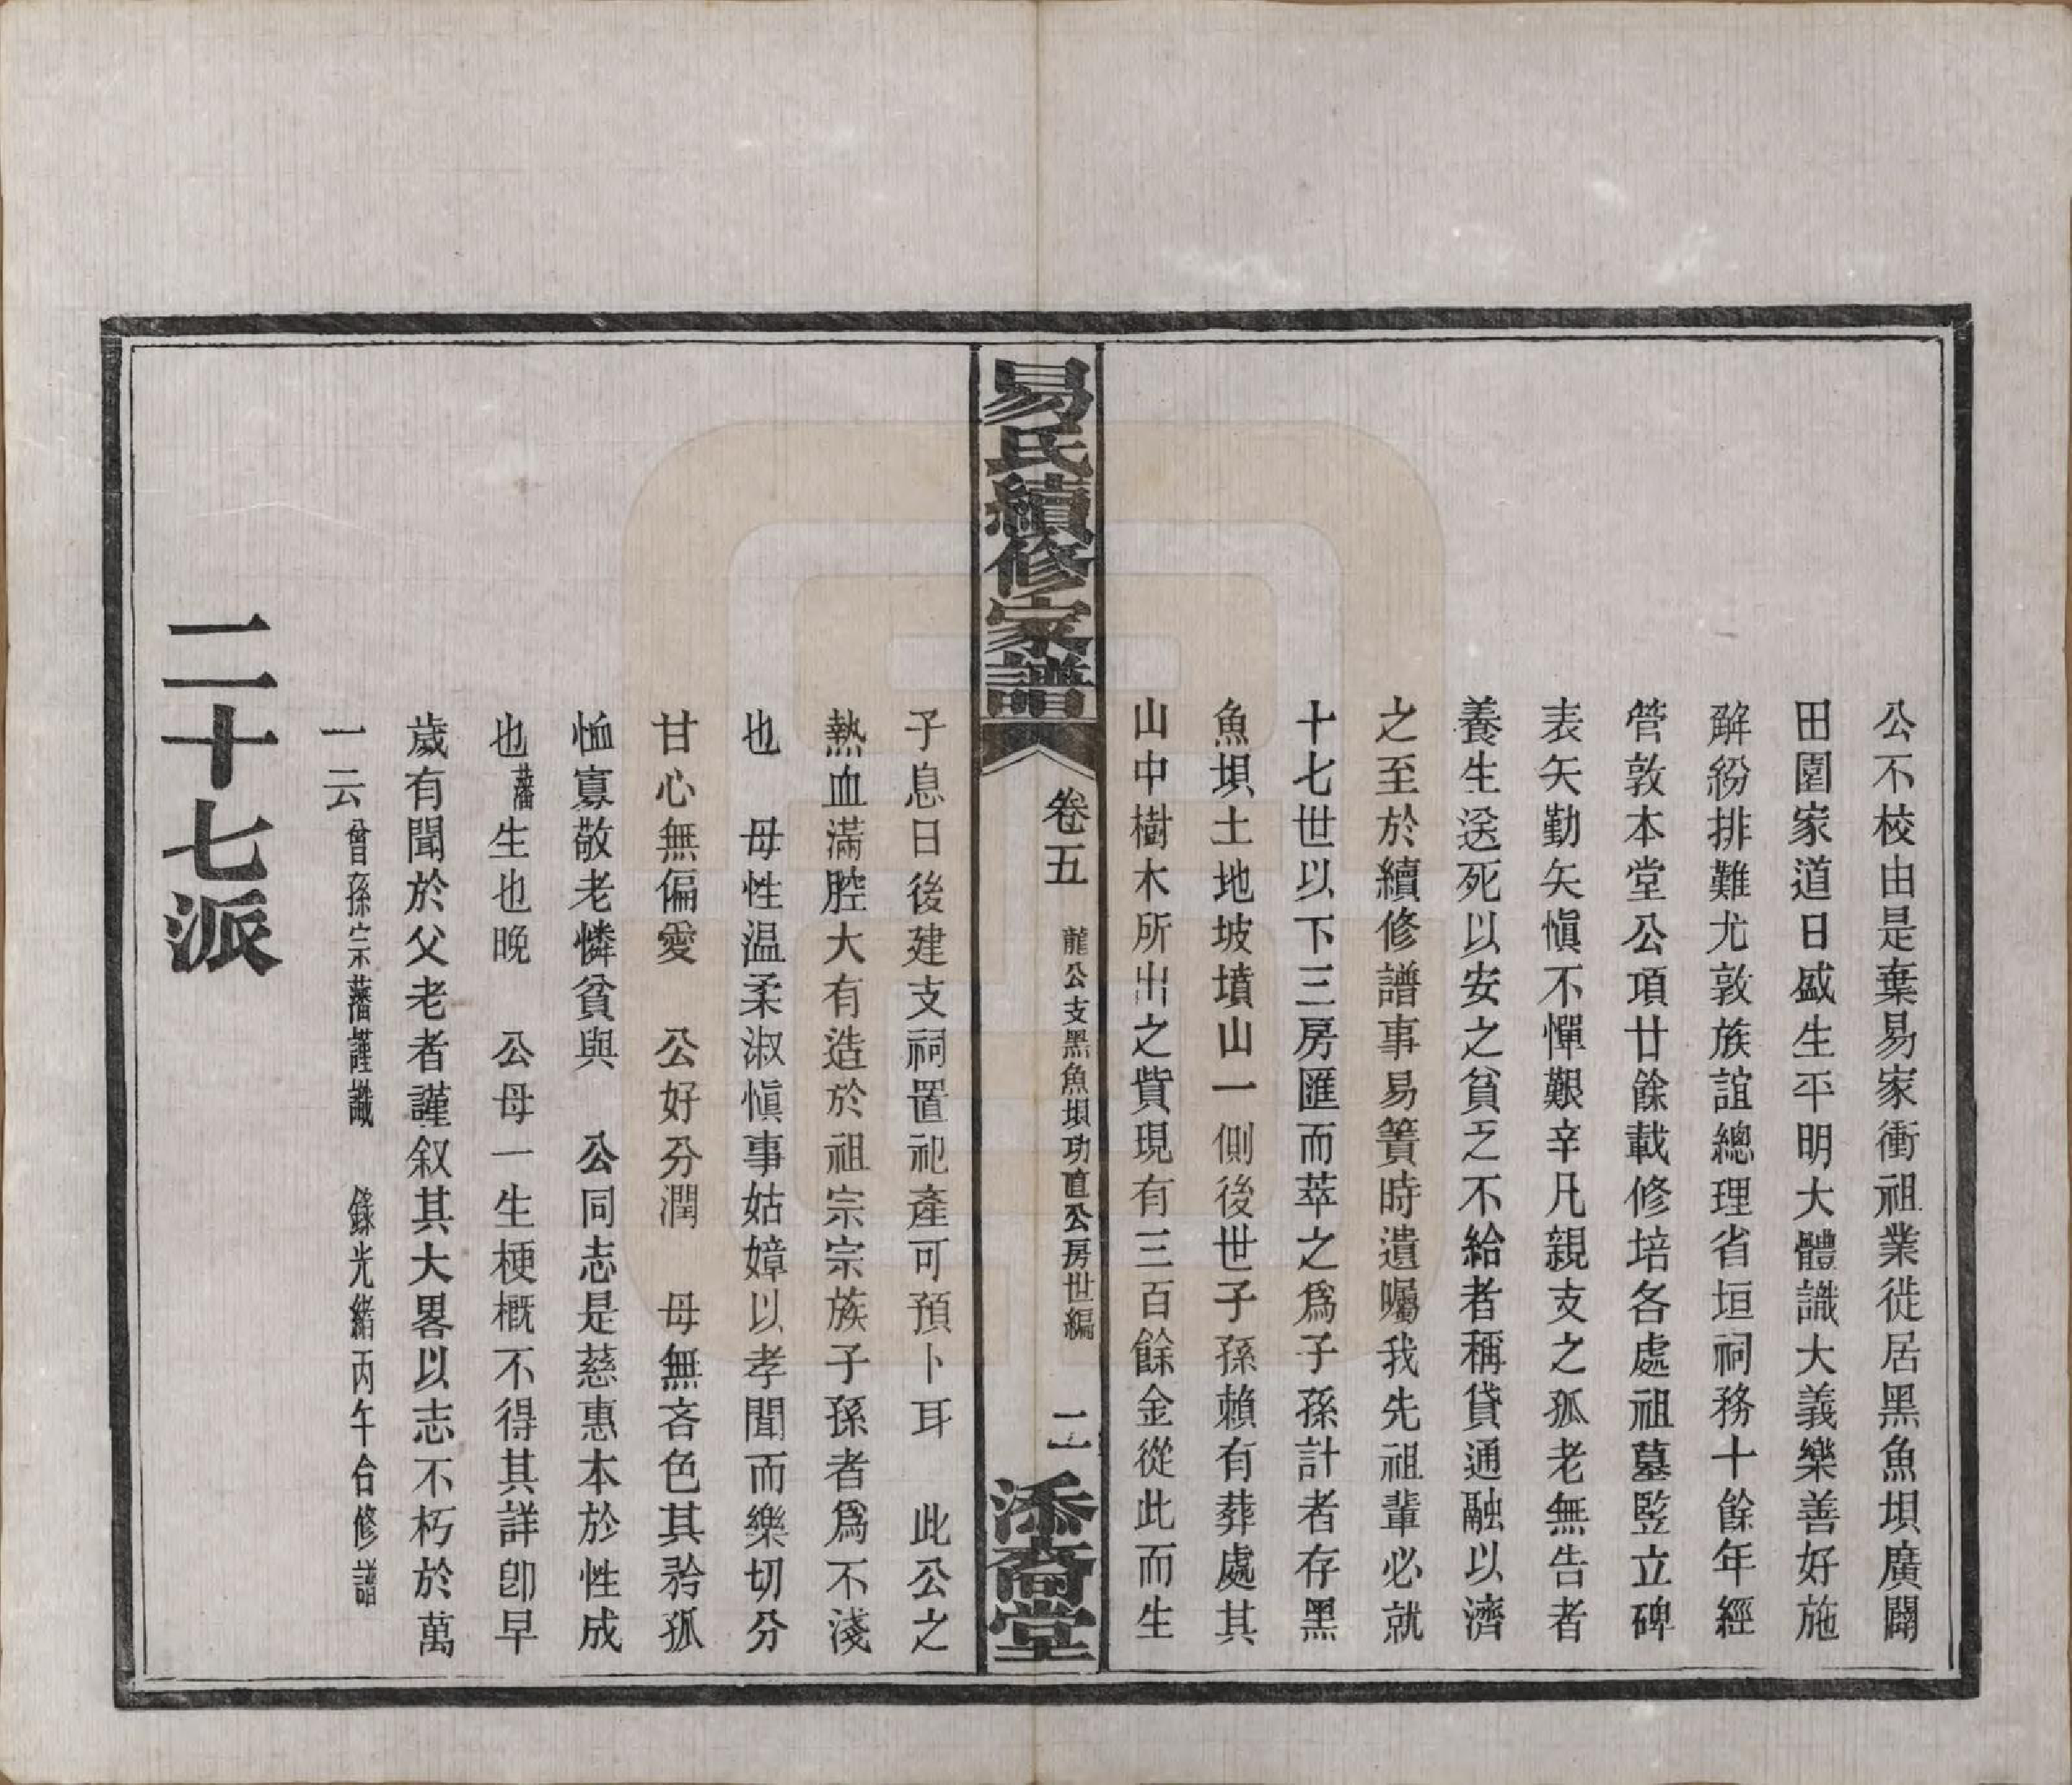 公不校由是棄易家衝祖業徙居黑魚垻廣闢
田園家道日盛生平明大體識大義樂善好施
觧紛排難尤敦族誼總理省垣祠務十餘年經
管敦本堂公項廿餘載修培各處祖墓監立碑
表矢勤矢愼不憚艱辛凡親支之孤老無告者
養生送死以安之貧乏不給者稱貸通融以濟
之至於續修譜事易簀時遺囑我先祖輩必就
十七世以下三房匯而萃之爲子孫計者存黑
魚垻土地坡墳山一側後世子孫賴有葬處其
山中樹木所出之貲現有三百餘金從此而生
易氏續修家譜 卷五 龍公支黑魚垻功直公房世編 二 添裔堂
子息日後建支祠置祀產可預卜耳 此公之
熱血滿腔大有造於祖宗宗族子孫者爲不淺
也 母性温柔淑愼事姑嫜以孝聞而樂切分
甘心無偏愛 公好分潤 母無吝色其矜孤
恤寡敬老憐貧與 公同志是慈惠本於性成
也藩生也晚 公母一生梗概不得其詳卽早
歲有聞於父老者謹叙其大畧以志不朽於萬
一云曾孫宗藩謹識 錄光緒丙午合修譜
二十七派